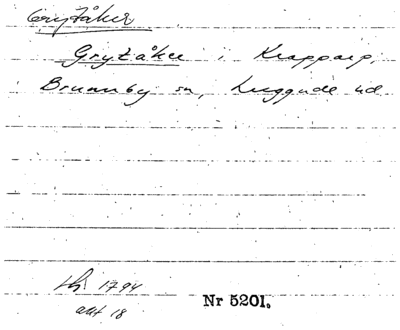 Grytåker
Grytåker i Krapparp,
Brunnby sn, Luggude hd
Lkr. 1794
akt 18
Nr 5201.